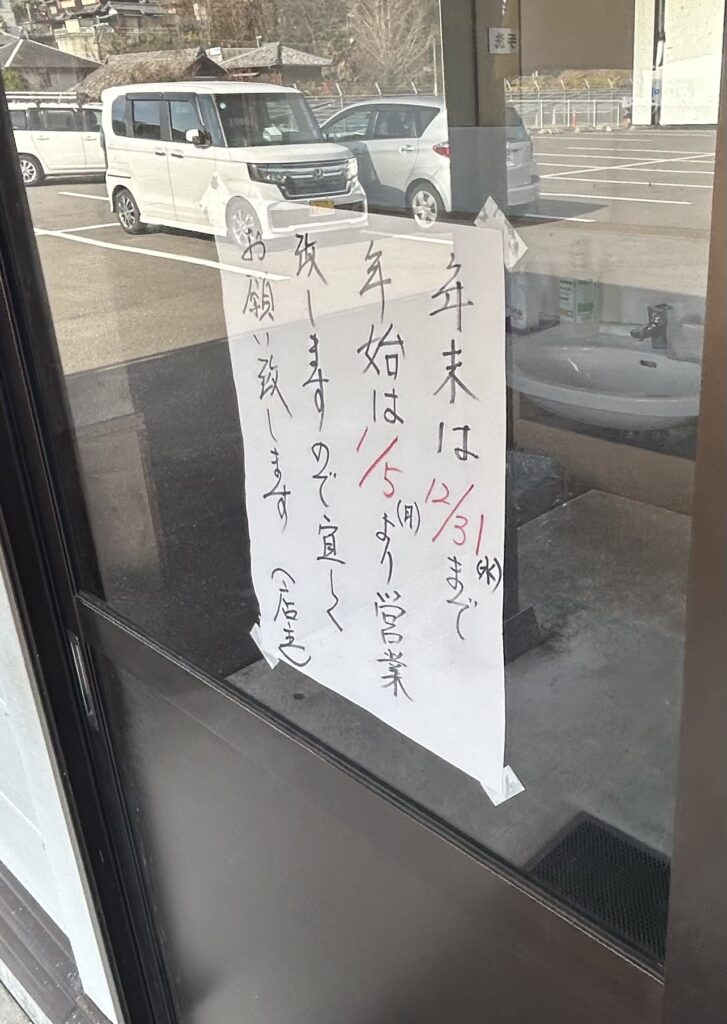 年末は12/31(水)まで
年始は1/5(月)より営業
致しますので宜しく
お願い致します (店主)
手洗